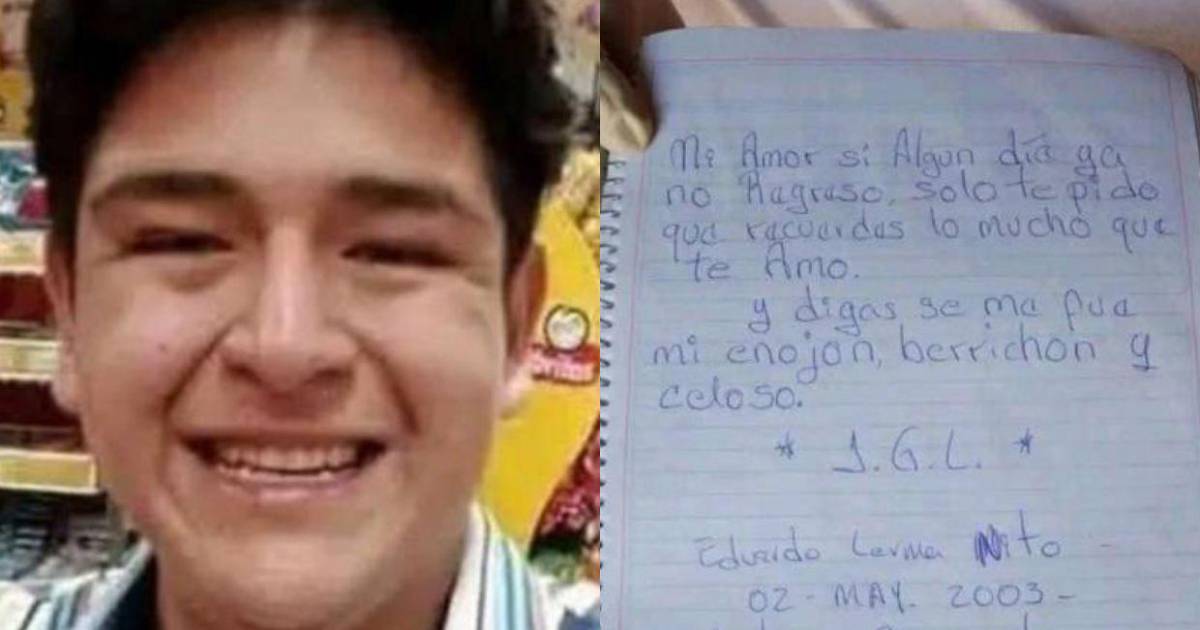 Mi Amor si Algun día ya
no Regreso, solo te pido
que recuerdes lo mucho que
te Amo.
y digas se me fue
mi enojon, berrichon y
celoso.
* J.G.L. *
Eduardo Lerma Nito -
02 - MAY. 2003 -